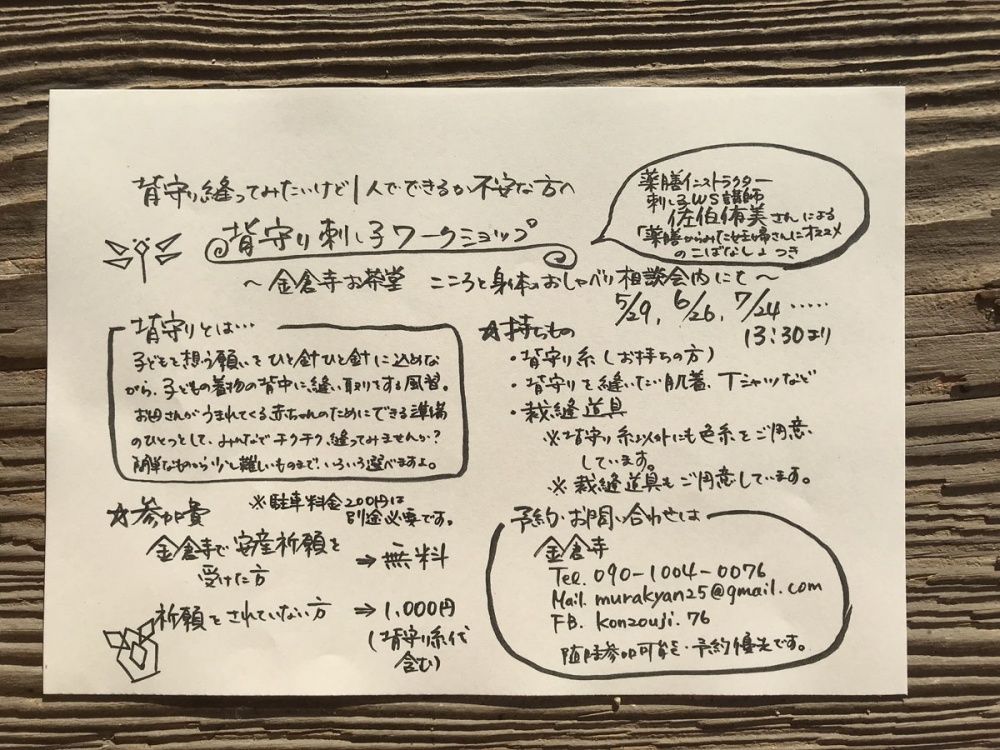 背守り縫ってみたいけど1人でできるか不安な方へ
背守り刺し子ワークショップ
〜金倉寺お茶堂 こころと身体のおしゃべり相談会内にて〜
薬膳インストラクター
刺し子WS講師
佐伯侑美さんによる
「薬膳からみた妊婦さんにオススメ
のこばなし」つき
5/29, 6/26, 7/24 ……
13:30より
背守りとは…
子どもを想う願いをひと針ひと針に込めな
がら、子どもの着物の背中に縫い取りをする風習。
お母さんがうまれてくる赤ちゃんのためにできる準備
のひとつとして、みんなでチクチク、縫ってみませんか?
簡単なものから少し難しいものまで、いろいろ選べますよ。
☆持ちもの
・背守り糸(お持ちの方)
・背守りを縫いたい肌着、Tシャツなど
・裁縫道具
※背守り糸以外にも色糸をご用意
しています。
※裁縫道具もご用意しています。
☆参加費
※駐車料金200円は
別途必要です。
金倉寺で安産祈願を
受けた方
⇒無料
祈願をされていない方
⇒1,000円
(背守り糸代
含む)
予約・お問い合わせは
金倉寺
Tel. 090-1004-0076
Mail. murakyan25@gmail.com
FB. konzouji.76
随時参加可能を・予約優先です。